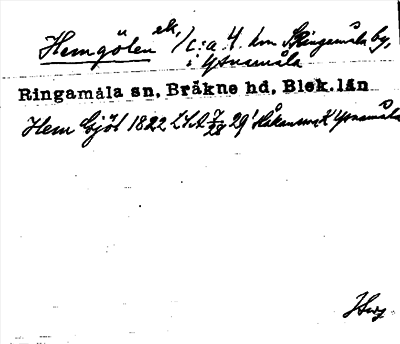 Hemgölen sk, c:a 4. km S Ringamåla by,
i Ysnamåla
Ringamåla sn, Bräkne hd, Blek. län
Hem Gjöl 1822 LSA 7/28 29! Håkansmåla Ysnamåla